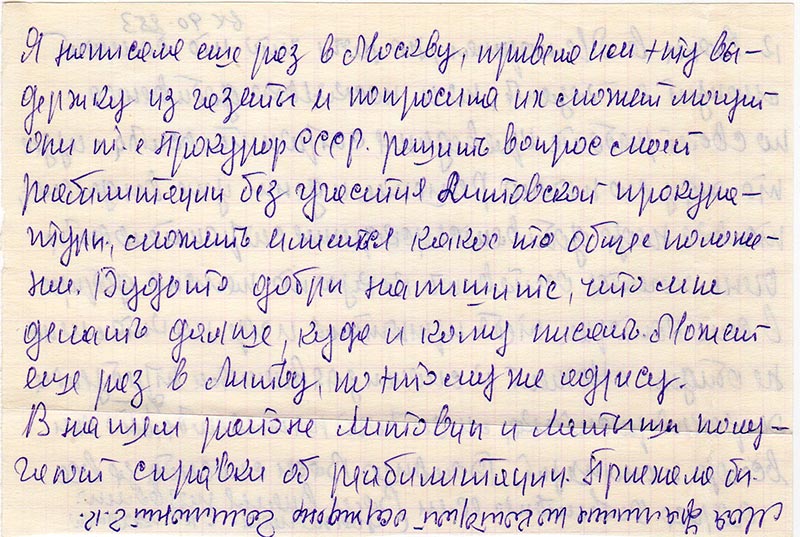 Я написала еще раз в Москву, привела им эту вы-
держку из газеты и попросила их сможет может
они т.е Прокурор СССР. решить вопрос о моей
реабилитации без участия Литовской прокура-
туры, сможет имеется какое то общее положе-
ние. Будьте добры напишите, что мне
делать дальше, куда и кому писать. Может
еще раз в Литву, по этому же адресу.
В нашем районе Литовцы и Латыши полу-
чают справки об реабилитации. Приехала бы
моя фамилия по которой